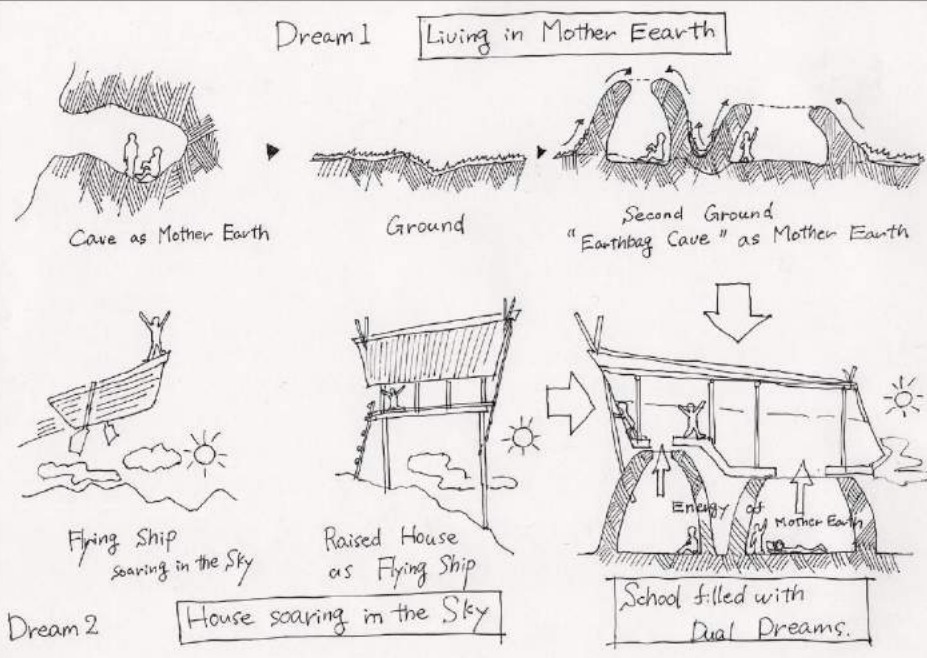 Dream 1
Living in Mother Eearth
Cave as Mother Earth
Ground
Second Ground
"Earthbag Cave" as Mother Earth
Flying Ship
soaring in the Sky
Raised House
as Flying Ship
Energy of
Mother Earth
Dream 2
House soaring in the Sky
School filled with
Dual Dreams.